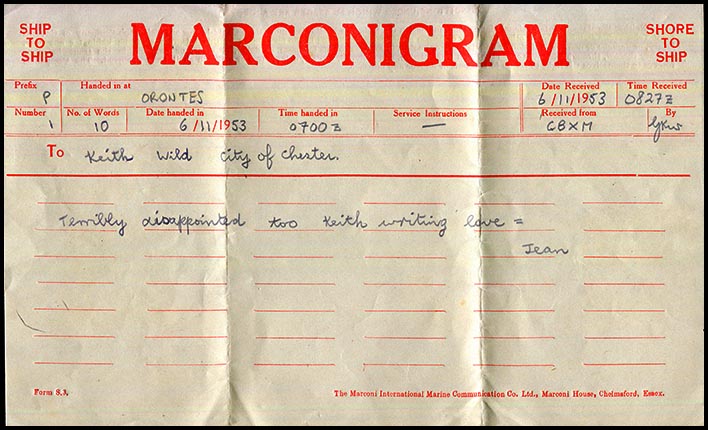 SHIP TO SHIP
MARCONIGRAM
SHORE TO SHIP
Prefix P
Handed in at ORONTES
Date Received 6/11/1953
Time Received 0827z
Number 1
No. of Words 10
Date handed in 6/11/1953
Time handed in 0700z
Service Instructions —
Received from GBXM
By
To Keith Wild City of Chester.
Terribly disappointed too Keith writing love =
Jean
Form S.3.
The Marconi International Marine Communication Co. Ltd., Marconi House, Chelmsford, Essex.